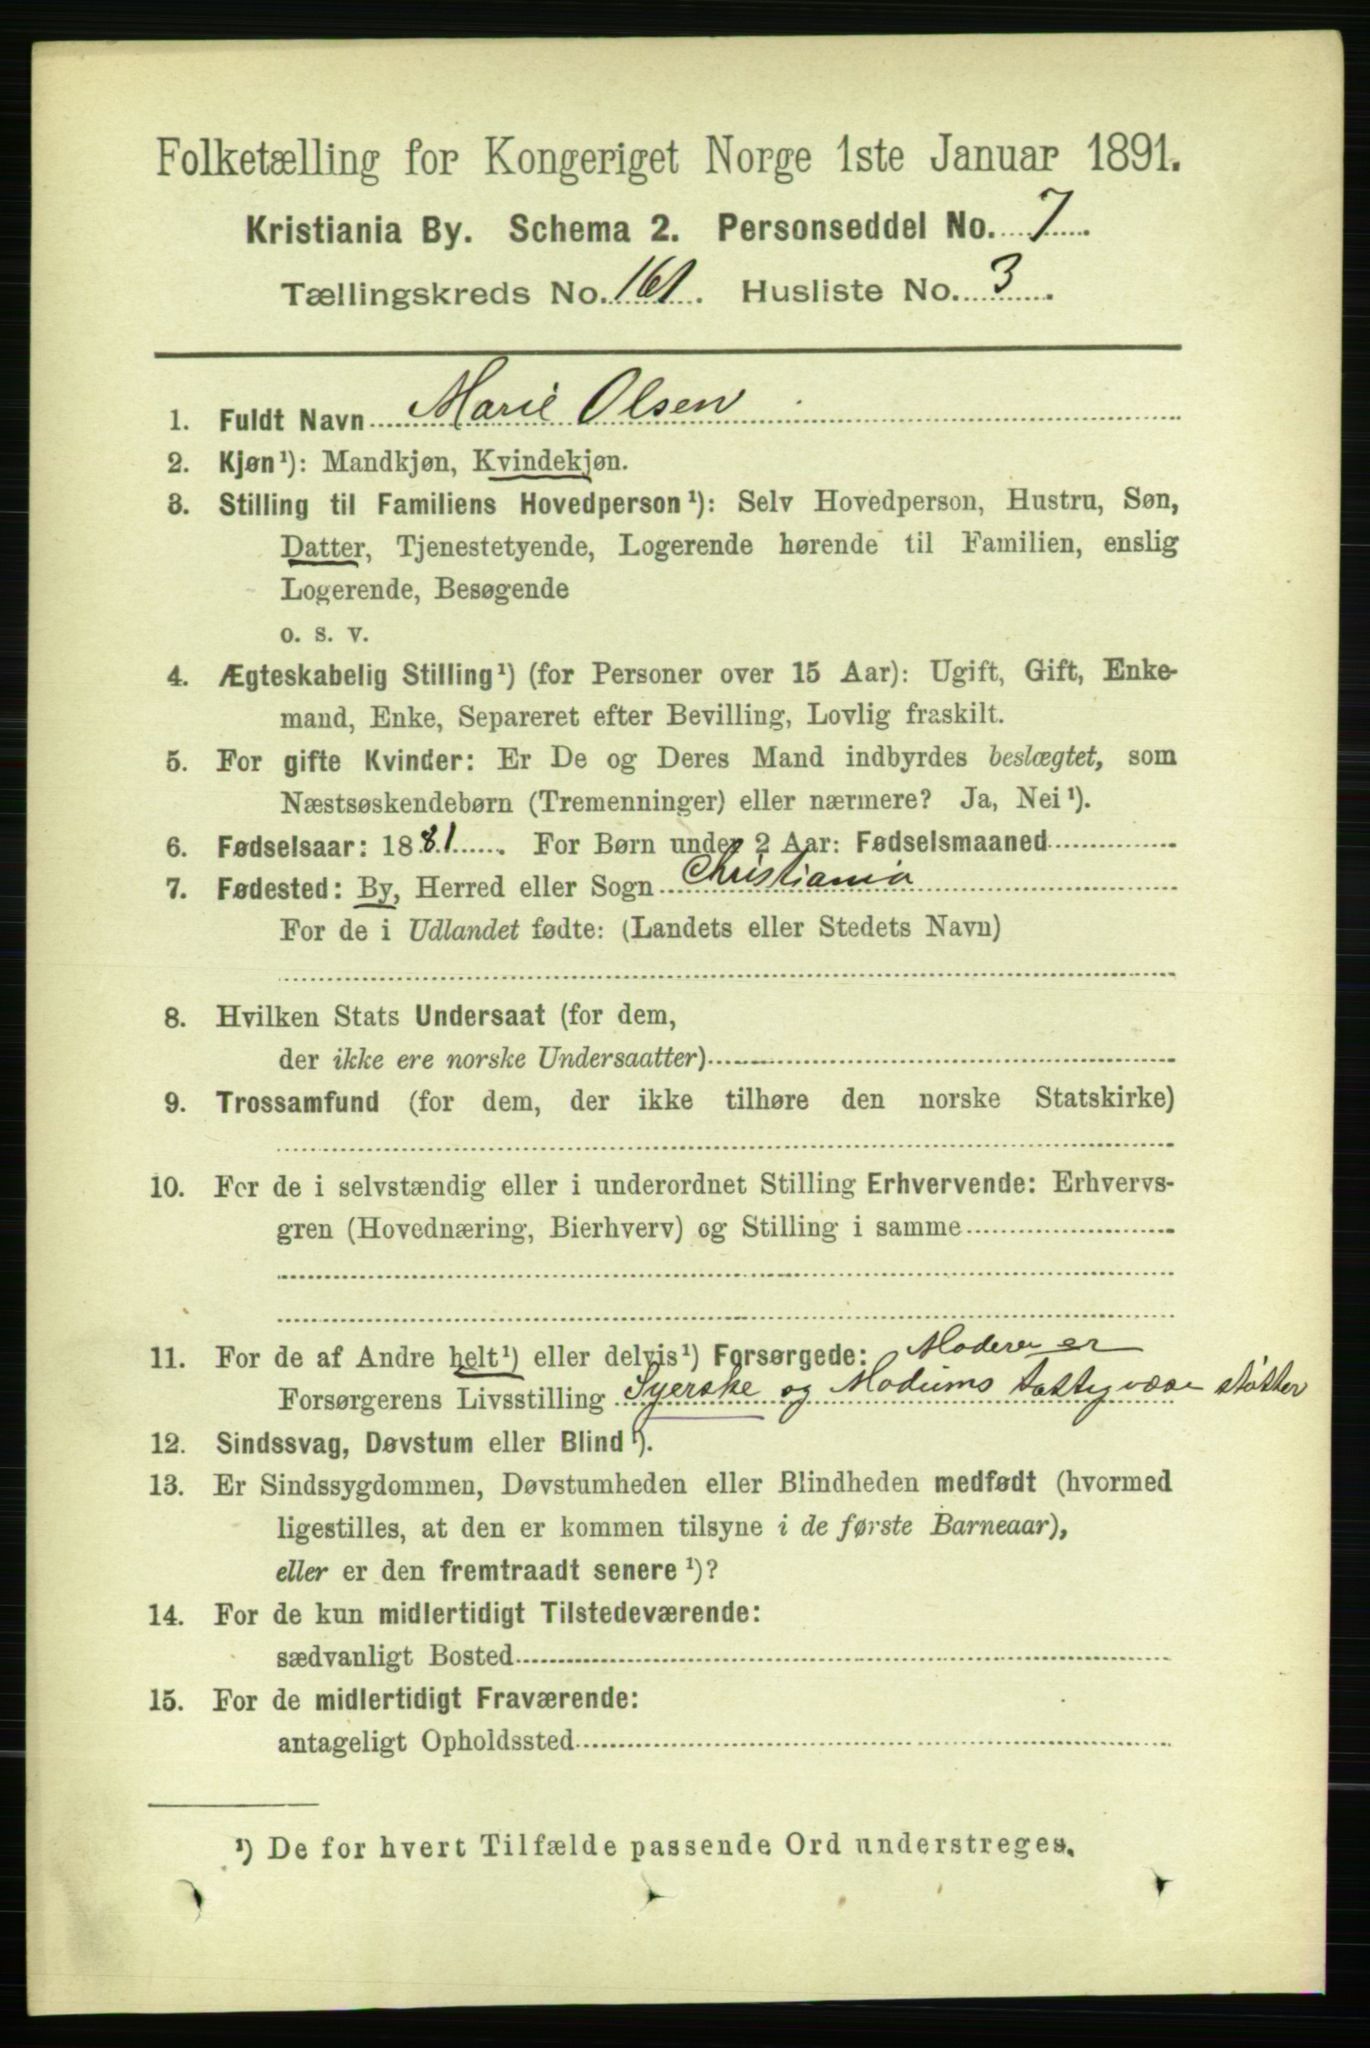 Folketælling for Kongeriget Norge 1ste Januar 1891.
Kristiania By. Schema 2. Personseddel No. 7.
Tællingskreds No. 161. Husliste No. 3.
1. Fuldt Navn Marie Olsen
2. Kjøn¹): Mandkjøn, Kvindekjøn.
3. Stilling til Familiens Hovedperson¹): Selv Hovedperson, Hustru, Søn,
Datter, Tjenestetyende, Logerende hørende til Familien, enslig
Logerende, Besøgende
o. s. v.
4. Ægteskabelig Stilling¹) (for Personer over 15 Aar): Ugift, Gift, Enke-
mand, Enke, Separeret efter Bevilling, Lovlig fraskilt.
5. For gifte Kvinder: Er De og Deres Mand indbyrdes beslægtet, som
Næstsøskendebørn (Tremenninger) eller nærmere? Ja, Nei¹).
6. Fødselsaar: 1881. For Børn under 2 Aar: Fødselsmaaned
7. Fødested: By, Herred eller Sogn Christiania
For de i Udlandet fødte: (Landets eller Stedets Navn)
8. Hvilken Stats Undersaat (for dem,
der ikke ere norske Undersaatter)
9. Trossamfund (for dem, der ikke tilhøre den norske Statskirke)
10. For de i selvstændig eller i underordnet Stilling Erhvervende: Erhvervs-
gren (Hovednæring, Bierhverv) og Stilling i samme
11. For de af Andre helt¹) eller delvis¹) Forsørgede: Moderen er
Forsørgerens Livsstilling Syerske og Modums støtter
12. Sindssvag, Døvstum eller Blind¹).
13. Er Sindssygdommen, Døvstumheden eller Blindheden medfødt (hvormed
ligestilles, at den er kommen tilsyne i de første Barneaar),
eller er den fremtraadt senere¹)?
14. For de kun midlertidigt Tilstedeværende:
sædvanligt Bosted
15. For de midlertidigt Fraværende:
antageligt Opholdssted
¹) De for hvert Tilfælde passende Ord understreges.